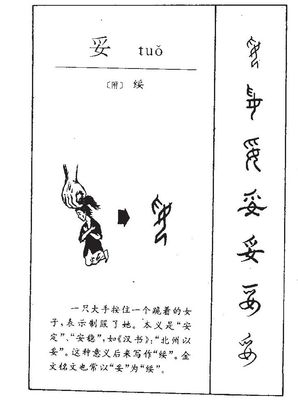 妥 tuǒ
〔附〕 绥
一只大手按住一个跪着的女
子，表示制服了她。本义是“安
定”、“安稳”，如《汉书》：“北州以
妥”。这种意义后来写作“绥”。金
文铭文也常以“妥”为“绥”。
妥
妥
妥
妥